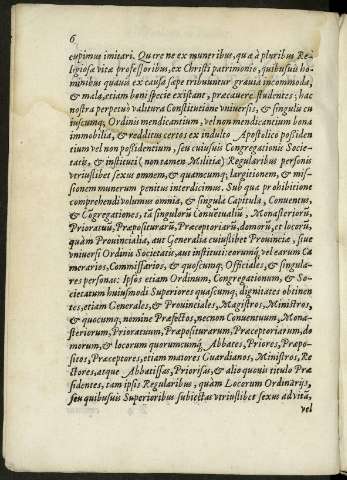 6
cupimus imitari. Quare ne ex muneribus, quæ à pluribus Re-
ligiosæ vitæ professoribus, ex Christi patrimonio, quibusuis ho-
minibus quauis ex causa sæpe tribuuntur grauia incommoda,
& mala, etiam boni specie existant, præcauere studentes; hac
nostra perpetuò valitura Constitutione vniuersis, & singulis cu
iuscunq; Ordinis mendicantium, vel non mendicantium bona
immobilia, & redditus certos ex indulto Apostolico possiden
tium vel non possidentium, seu cuiusuis Congregationis Socie-
tatis, & instituti (non tamen Militiæ) Regularibus personis
vtriuslibet sexus omnem, & quamcunq; largitionem, & mis-
sionem munerum penitus interdicimus. Sub qua prohibitione
comprehendi volumus omnia, & singula Capitula, Conuentus,
& Cōgregationes, tā singulorū Conuētualiū, Monasteriorū,
Prioratuū, Præpositurarū, Præceptoriarū, domorū, et locorū,
quàm Prouincialia, aut Generalia cuiuslibet Prouinciæ, siue
vniuersi Ordinis Societatis, aut instituti: eorumq; vel earum Ca
merarios, Commissarios, & quoscunq; Officiales, & singula-
res personas: Ipsos etiam Ordinum, Congregationum, & So-
cietatum huiusmodi Superiores quascunq; dignitates obtinen
tes, etiam Generales, & Prouinciales, Magistros, Ministros,
& quocunq; nomine Præfectos, necnon Conuentuum, Mona-
steriorum, Prioratuum, Præpositurarum, Præceptoriarum, do
morum, & locorum quorumcunq; Abbates, Priores, Præpo-
sitos, Præceptores, etiam maiores Guardianos, Ministros, Re
ctores, atque Abbatissas, Priorissas, & alio quouis titulo Præ
sidentes, tam ipsis Regularibus, quàm Locorum Ordinarijs,
seu quibusuis Superioribus subiectas vtriuslibet sexus aduitā,
vel